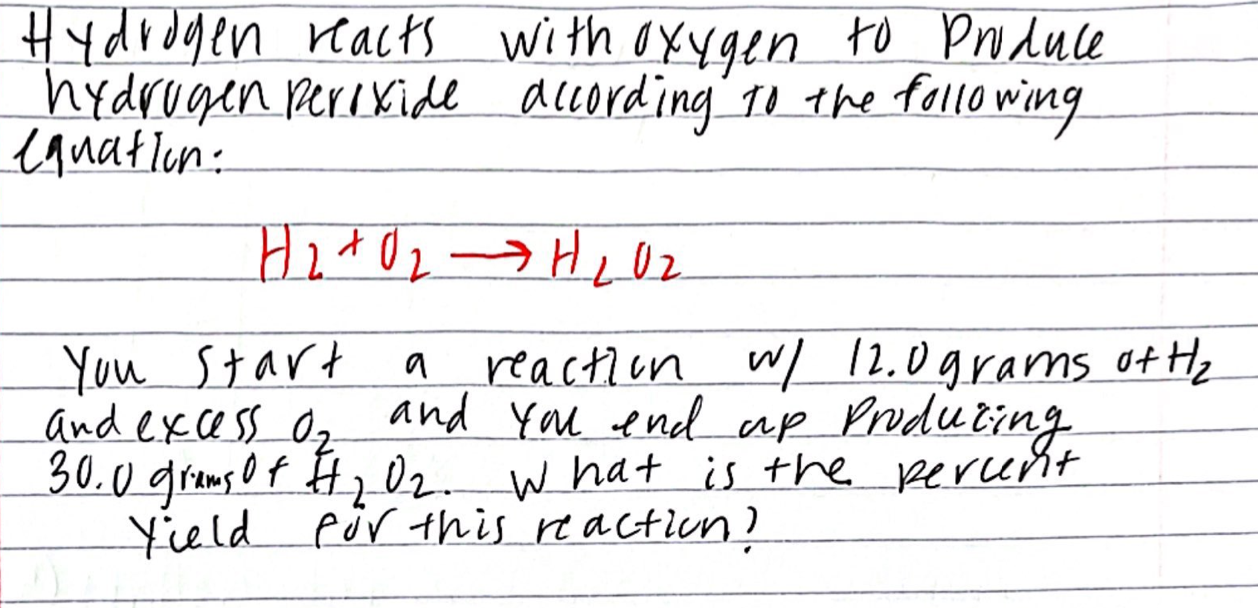 Hydrogen reacts with oxygen to produce
hydrogen peroxide according to the following
equation:
H₂ + O₂ → H₂O₂
You start a reaction w/ 12.0 grams of H₂
and excess O₂ and you end up producing
30.0 grams of H₂O₂. What is the percent
yield for this reaction?